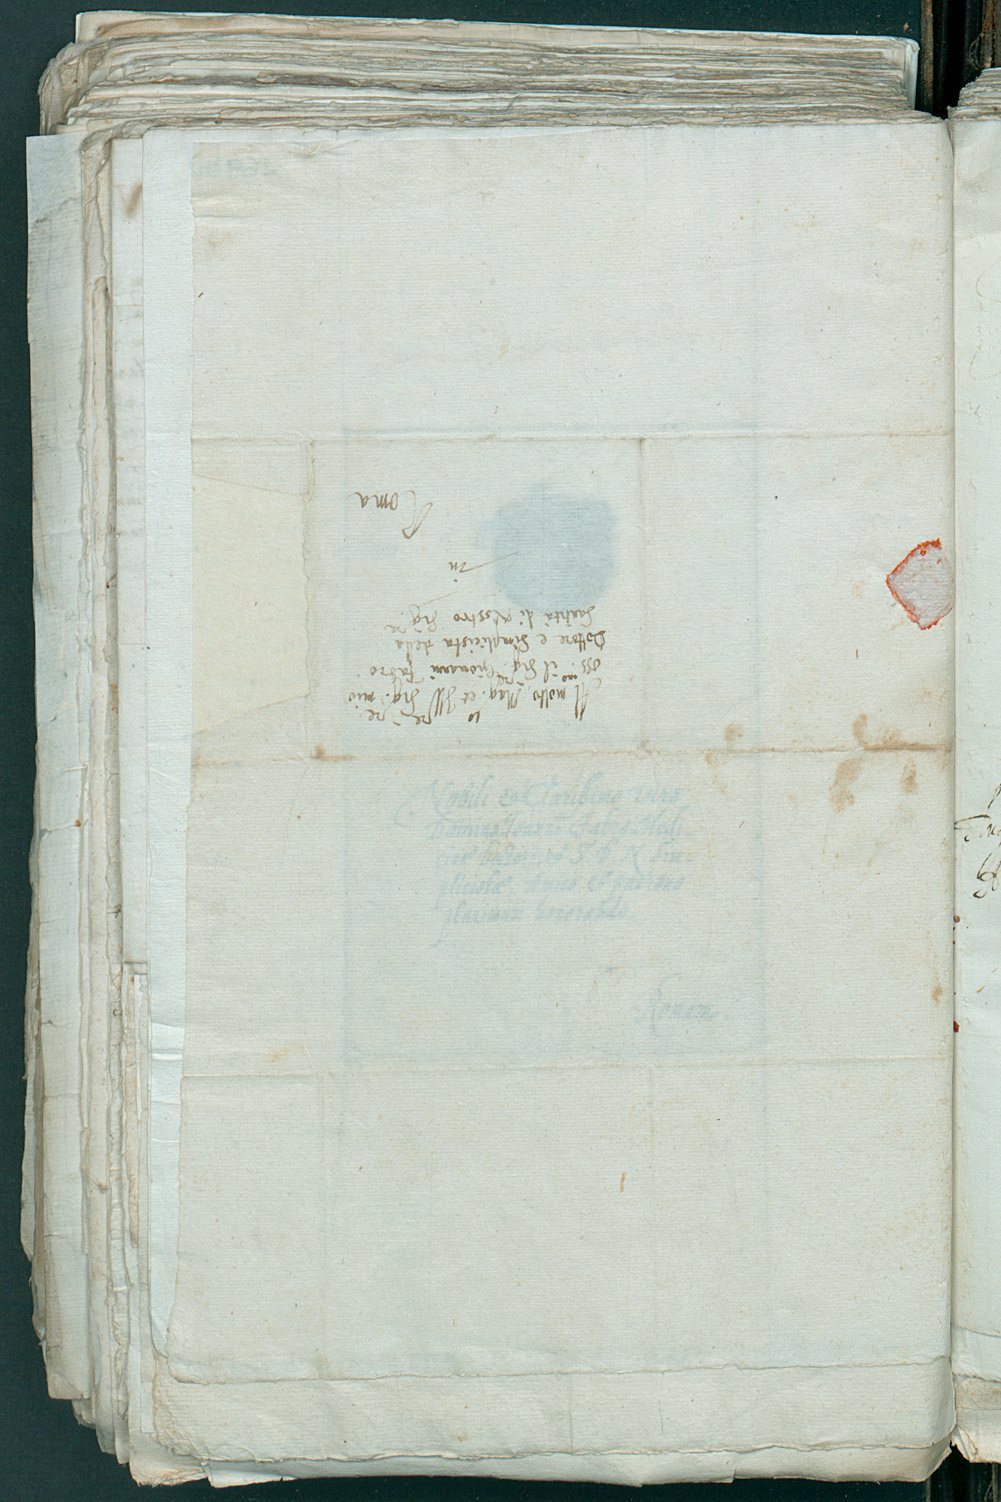 Al molto Mag.co et Ill.re Sig.re mio
oss.mo il Sig.re Giovanni Fabro
Dottore e Simplicista della
Santità di Nostro Sig.re
in
Roma
Nobili et Clarissimo viro
Domino Joanni Fabro Medi-
S. D. N. Sim-
plicistae Amico et patrono
plurimum honorando
Romam